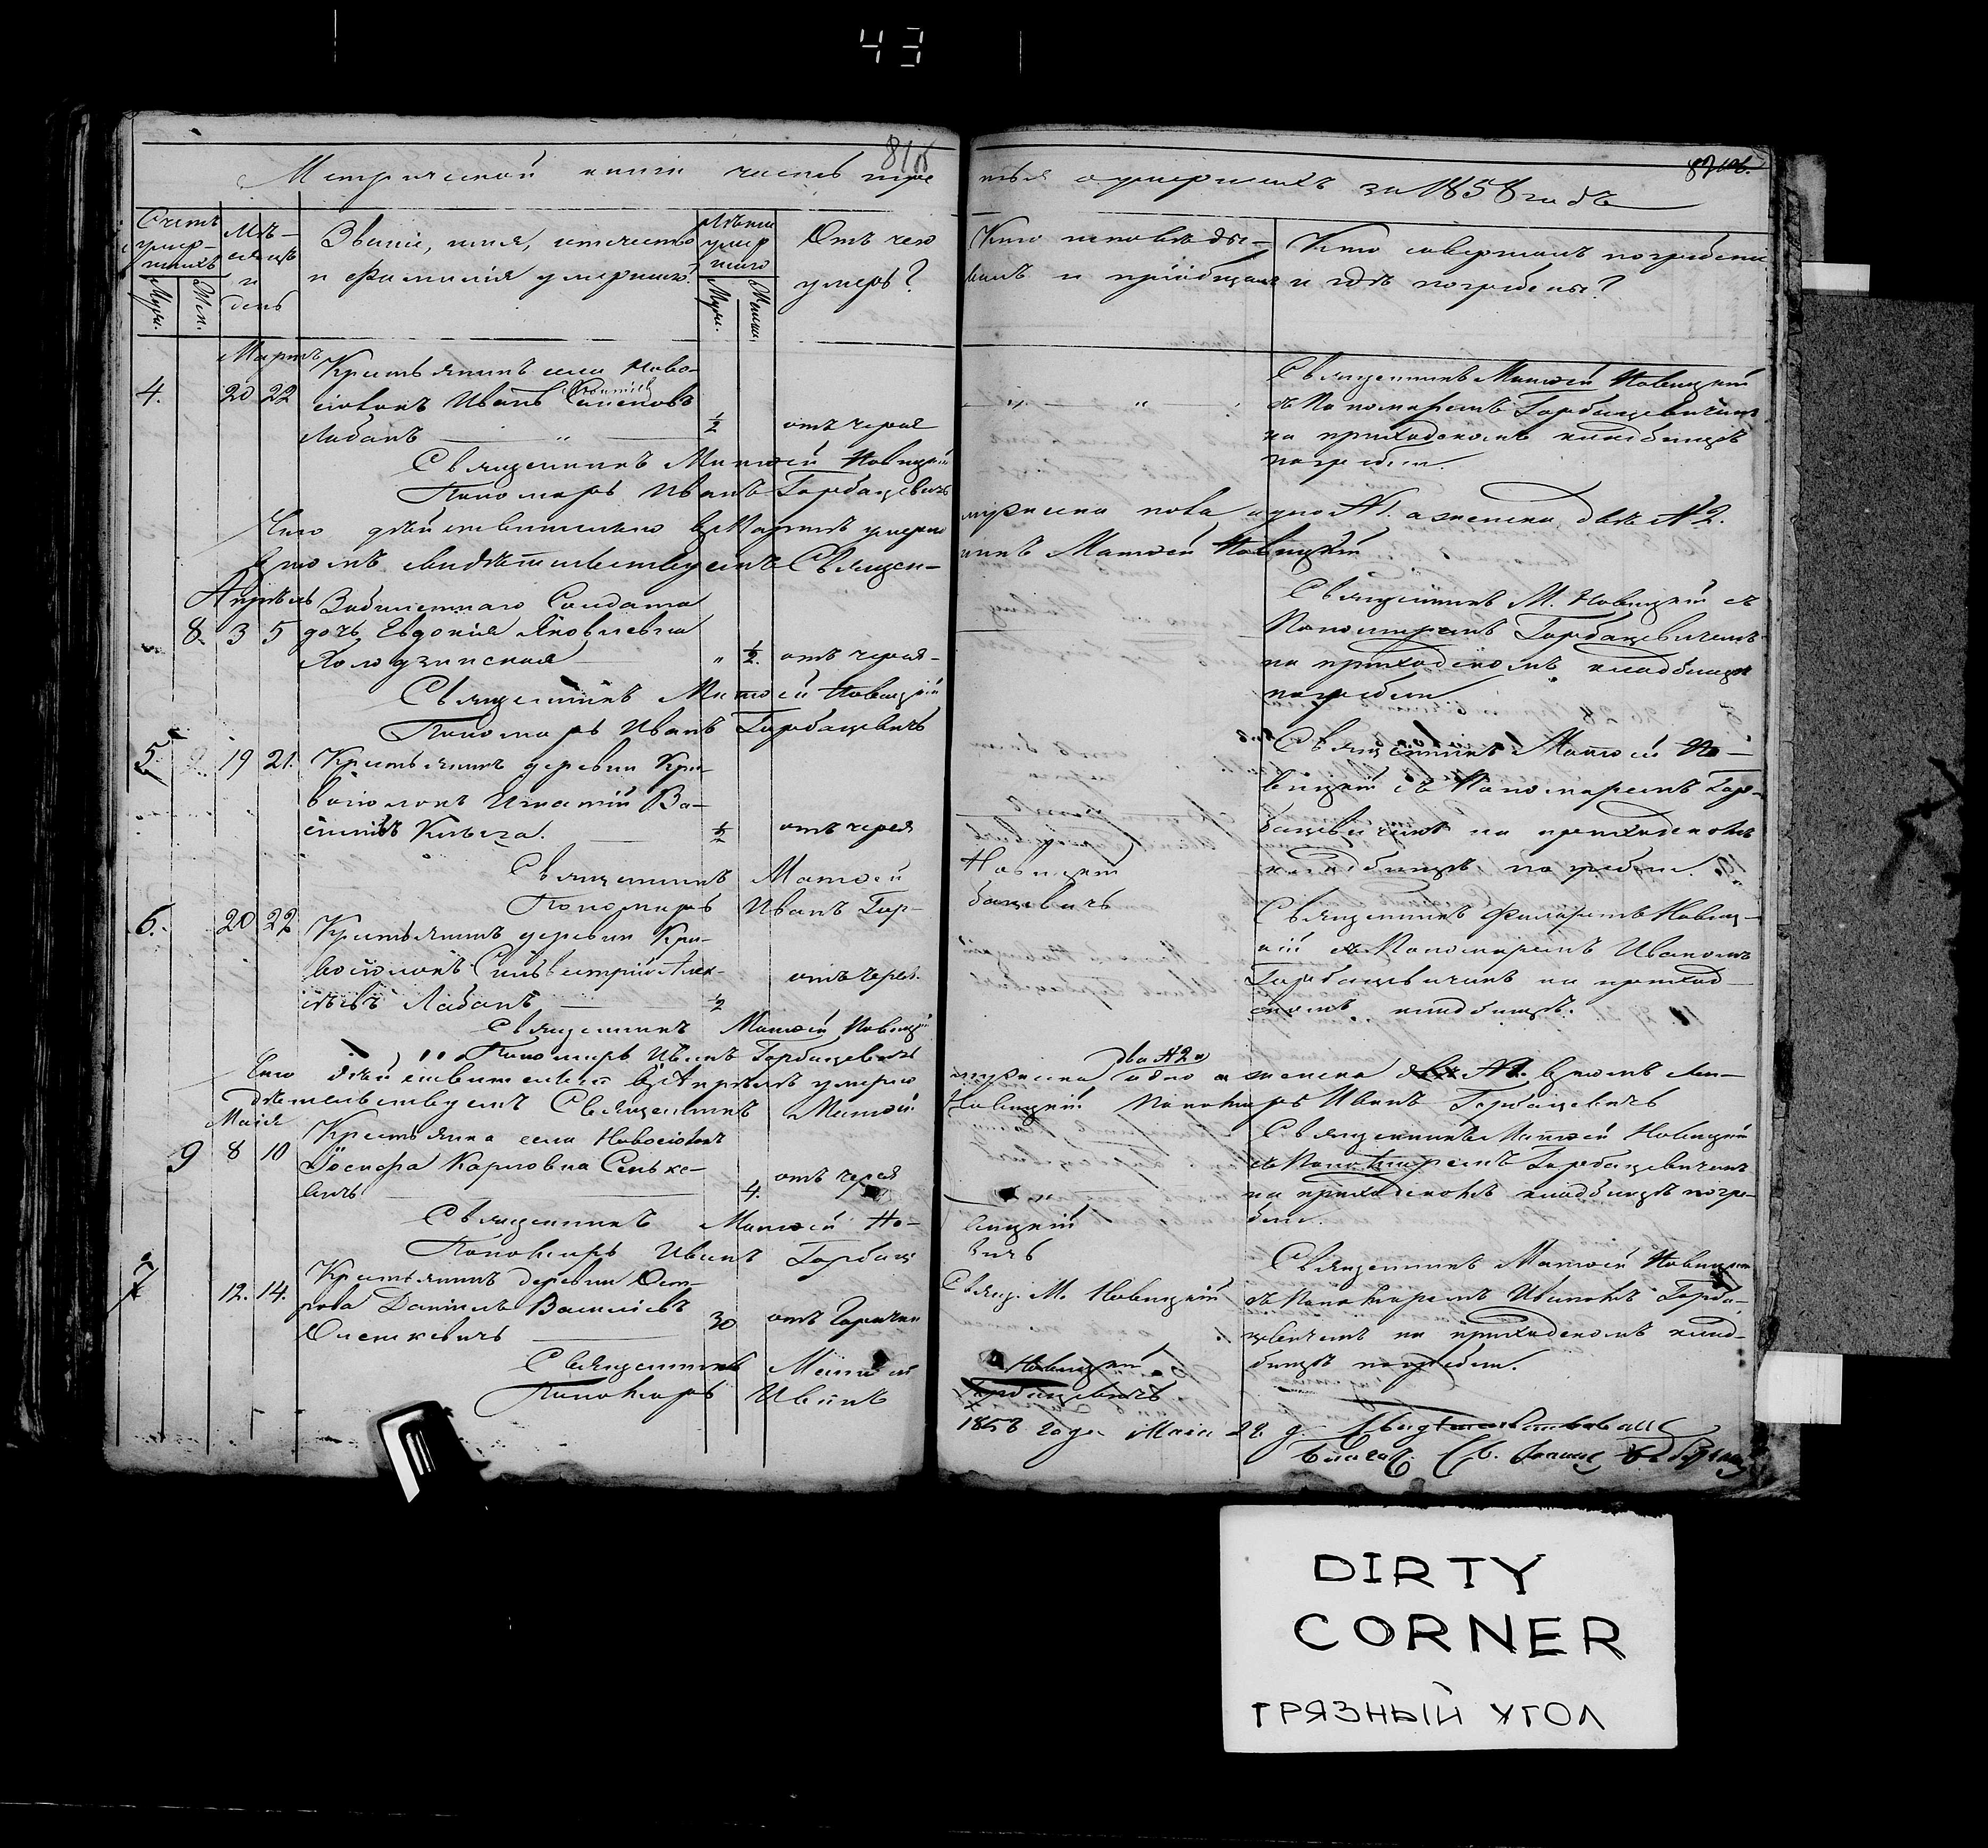 43
Метрической книги часть тре
тья о умершихъ за 1858 годъ
Счетъ умер-шихъ
Муж.
Жен.
Мѣ-сяцъ и день
Званіе, имя, отчество
и фамилія умершаго.
Лѣта умер шаго
Муж.
Женск.
Отъ чего
умеръ?
Кто исповѣды-
валъ и пріобщалъ
Кто совершалъ погребеніе
и гдѣ погребены?
Мартъ
4. 20 22
Крестьянинъ села Ново-
Иванъ
Лабанъ
1/2
отъ черая
Священникъ Матѳей Новицкій
съ Пономаремъ Горбацевичемъ
на приходскомъ кладбищѣ
погребен.
Священникъ Матѳей Новицкій
Пономарь Иванъ Горбацевичъ
Что дѣйствительно въ Мартѣ умерло
мужеска пола одно №1. а женска двѣ №2.
въ томъ свидѣтельствуетъ Священ-
никъ Матѳей Новицкій
Апрѣль
8. 3 5
Забилетнаго Солдата
дочь Евдокія Яковлевна
" 1/2. отъ черая
Священникъ М. Новицкій съ
Пономаремъ Горбацевичемъ
на приходскомъ кладбищѣ
погребен.
Священникъ Матѳей Новицкій
Пономарь Иванъ Горбацевичъ
5. 19 21.
Крестьянинъ деревни Кри-
Игнатій Ва-
1/2
отъ черая
Священникъ Матѳей Но-
вицкій съ Пономаремъ Гор-
бацевичемъ на приходскомъ
кладбищѣ погребен.
Священникъ Матѳей
Новицкій
Пономарь Иванъ Гор-
бацевичъ
6. 20 22
Крестьянинъ деревни Кри-
Сильвестрій Алек-
сѣевъ Лабанъ
1/2
отъ черая.
Священникъ Филаретъ Новиц-
кій съ Пономаремъ Иваномъ
Горбацевичемъ на приход-
скомъ кладбищѣ.
Священникъ Матѳей Новицкій
Пономарь Иванъ Горбацевичъ
Что дѣйствительно въ Апрѣлѣ умерло
два №2 а
мужеска одно а женска въ томъ сви-
дѣтельствуетъ Священникъ Матѳей
Новицкій Пономарь Иванъ Горбацевичъ
Маія
9 8 10
Крестьянка села
Іосифа Карповна Сенько-
вичъ
4.
отъ черая
Священникъ Матѳей Новицкій
съ Пономаремъ Горбацевичемъ
на приходскомъ кладбищѣ погре-
бен.
Священникъ Матѳей Но-
вицкій
Пономарь Иванъ Горбаце
вичъ
7 12. 14.
Крестьянинъ деревни Ост-
рова Даніилъ Василіевъ
Олешкевичъ
30
отъ Горячки
Свящ. М. Новицкій
Священникъ Матѳей Новицкій
съ Пономаремъ Иваномъ Горба-
цевичемъ на приходскомъ клад-
бищѣ погребен.
Священникъ Матѳей
Новицкій
Пономарь Иванъ
Горбацевичъ
1858 года Маія 22 д. Свидѣтельствовалъ
DIRTY
CORNER
ГРЯЗНЫЙ УГОЛ